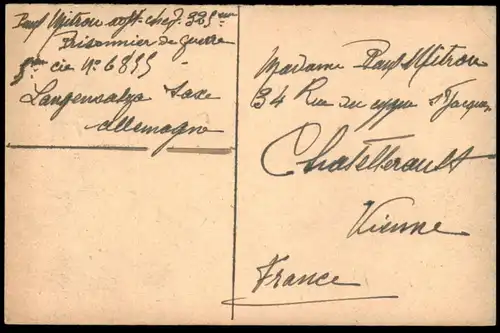 Paul Mitrou adjt. chef. 325ème
Prisonnier de guerre
cie No 6855
Langensalza Saxe
Allemagne
Madame Paul Mitrou
34 Rue du St Jacques
Chatellerault
Vienne
France